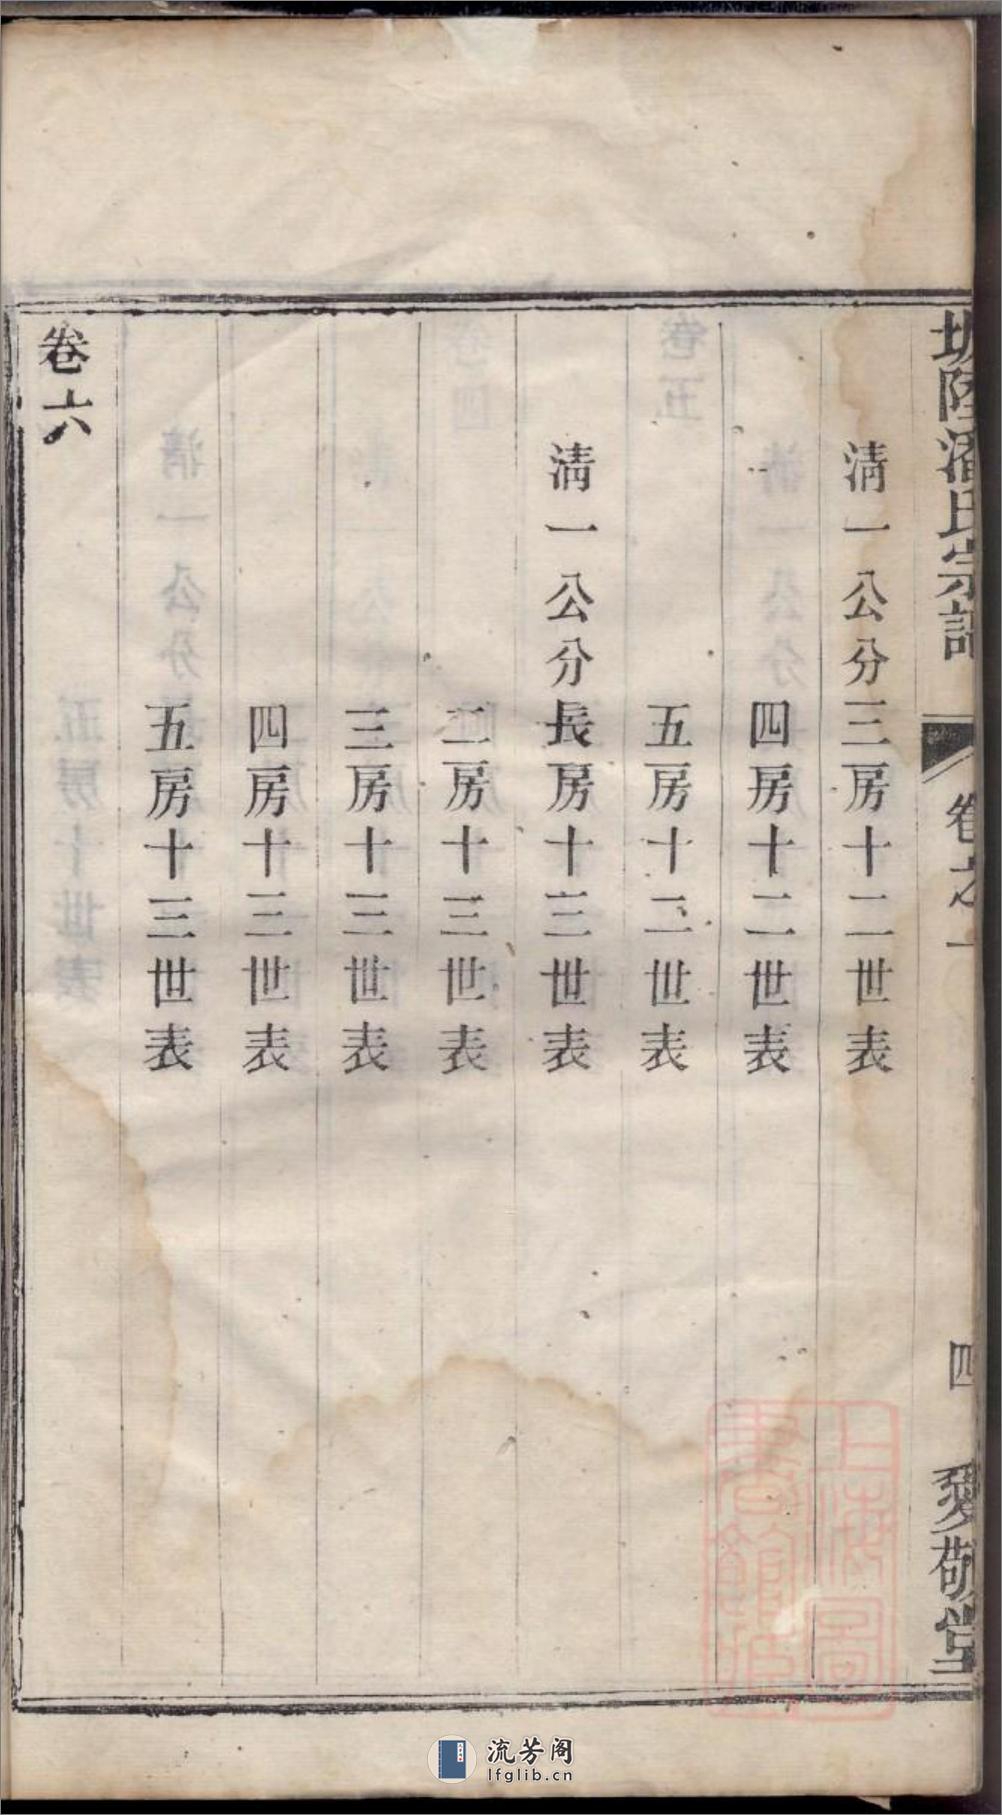 坡陸潘氏宗譜
卷之一
四
愛敬堂
淸一公分三房十二世表
四房十二世表
五房十二世表
淸一公分長房十三世表
二房十三世表
三房十三世表
四房十三世表
五房十三世表
卷六
上海圖
書館藏
流芳阁
lfglib.cn